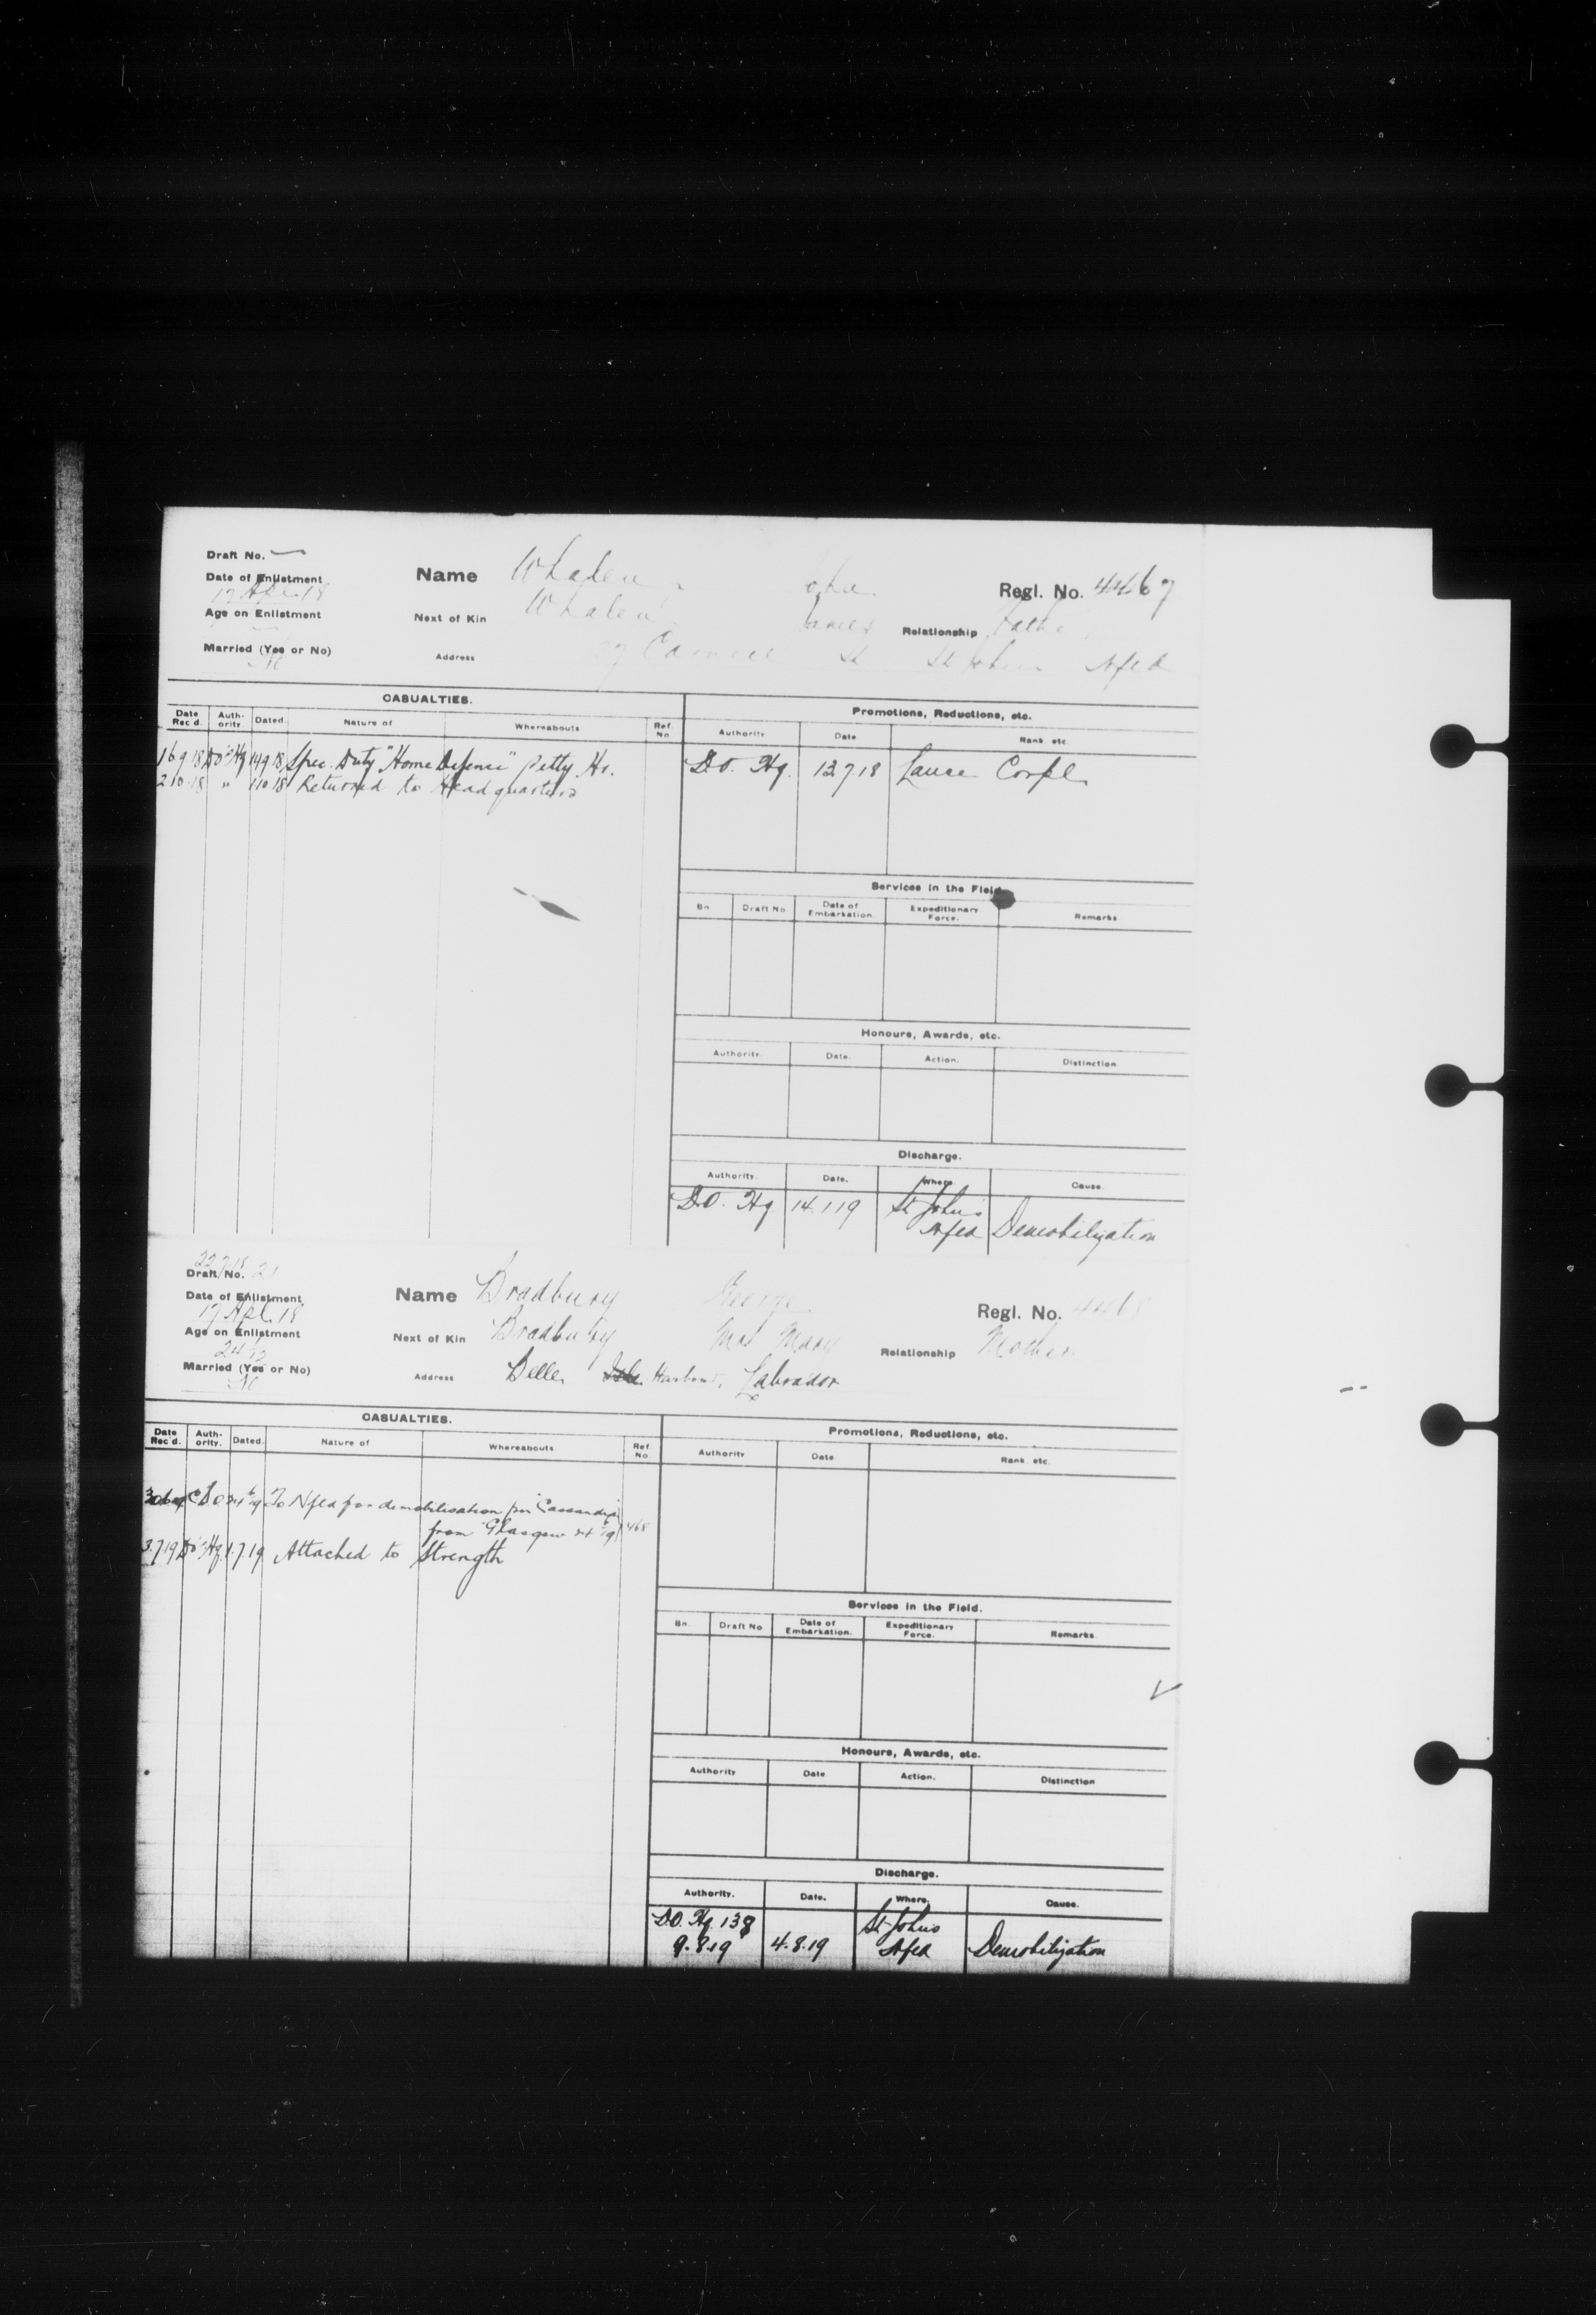 Draft No. —
Date of Enlistment
17 Apl. 18
Age on Enlistment
Married (Yes or No)
No
Name Whalen John Regl. No. 4467
Next of Kin Whalen James Relationship Father
Address St St Johns Nfld
CASUALTIES.
Date Rec'd. Authority. Dated. Nature of Whereabouts Ref. No.
16 9 18 DO Hq 14 9 18 Spec. Duty "Home Defence" Petty Hr.
2 10 18 " 1 10 18 Returned to Headquarters
Promotions, Reductions, etc.
Authority Date Rank etc.
D.O. Hq. 12 7 18 Lance Corpl.
Services in the Field.
Bn. Draft No Date of Embarkation Expeditionary Force. Remarks
Honours, Awards, etc.
Authority. Date. Action. Distinction
Discharge.
Authority. Date. Where. Cause.
D.O. Hq 14.1.19 St John's Nfld Demobilization
22.7.18
Draft No. 21
Date of Enlistment
17 Apl. 18
Age on Enlistment
Married (Yes or No)
No
Name Bradbury George Regl. No. 4468
Next of Kin Bradbury Mrs Mary Relationship Mother
Address Belle Isle Harbour, Labrador
CASUALTIES.
Date Rec'd. Authority. Dated. Nature of Whereabouts Ref. No.
To Nfld for demobilisation per "Cassandra"
from Glasgow 468
3.7.19 DO Hq 1.7.19 Attached to Strength
Promotions, Reductions, etc.
Authority Date Rank etc.
Services in the Field.
Bn. Draft No Date of Embarkation. Expeditionary Force. Remarks.
Honours, Awards, etc.
Authority Date Action. Distinction
Discharge.
Authority. Date. Where Cause.
D.O. Hq. 138
9.8.19 4.8.19 St Johns Nfld Demobilization